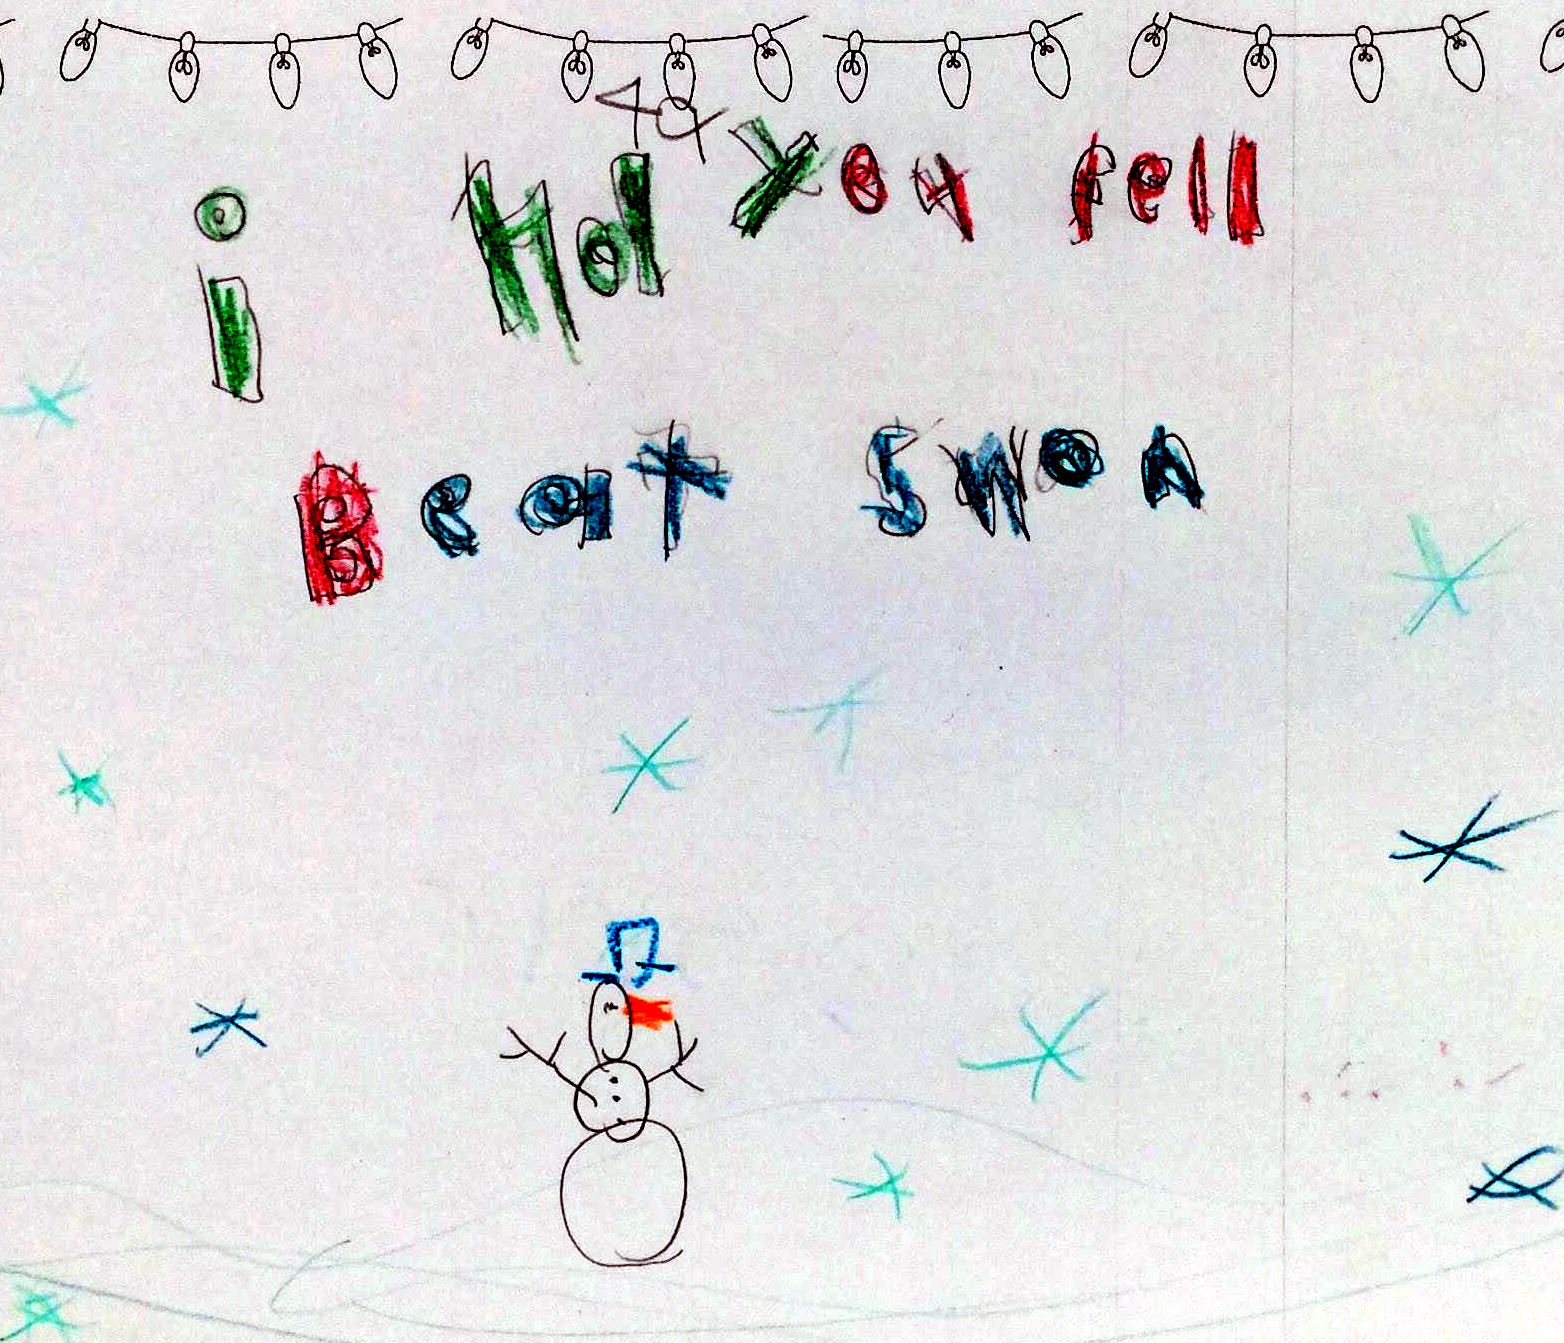 i Hol You fell
Beat Swon